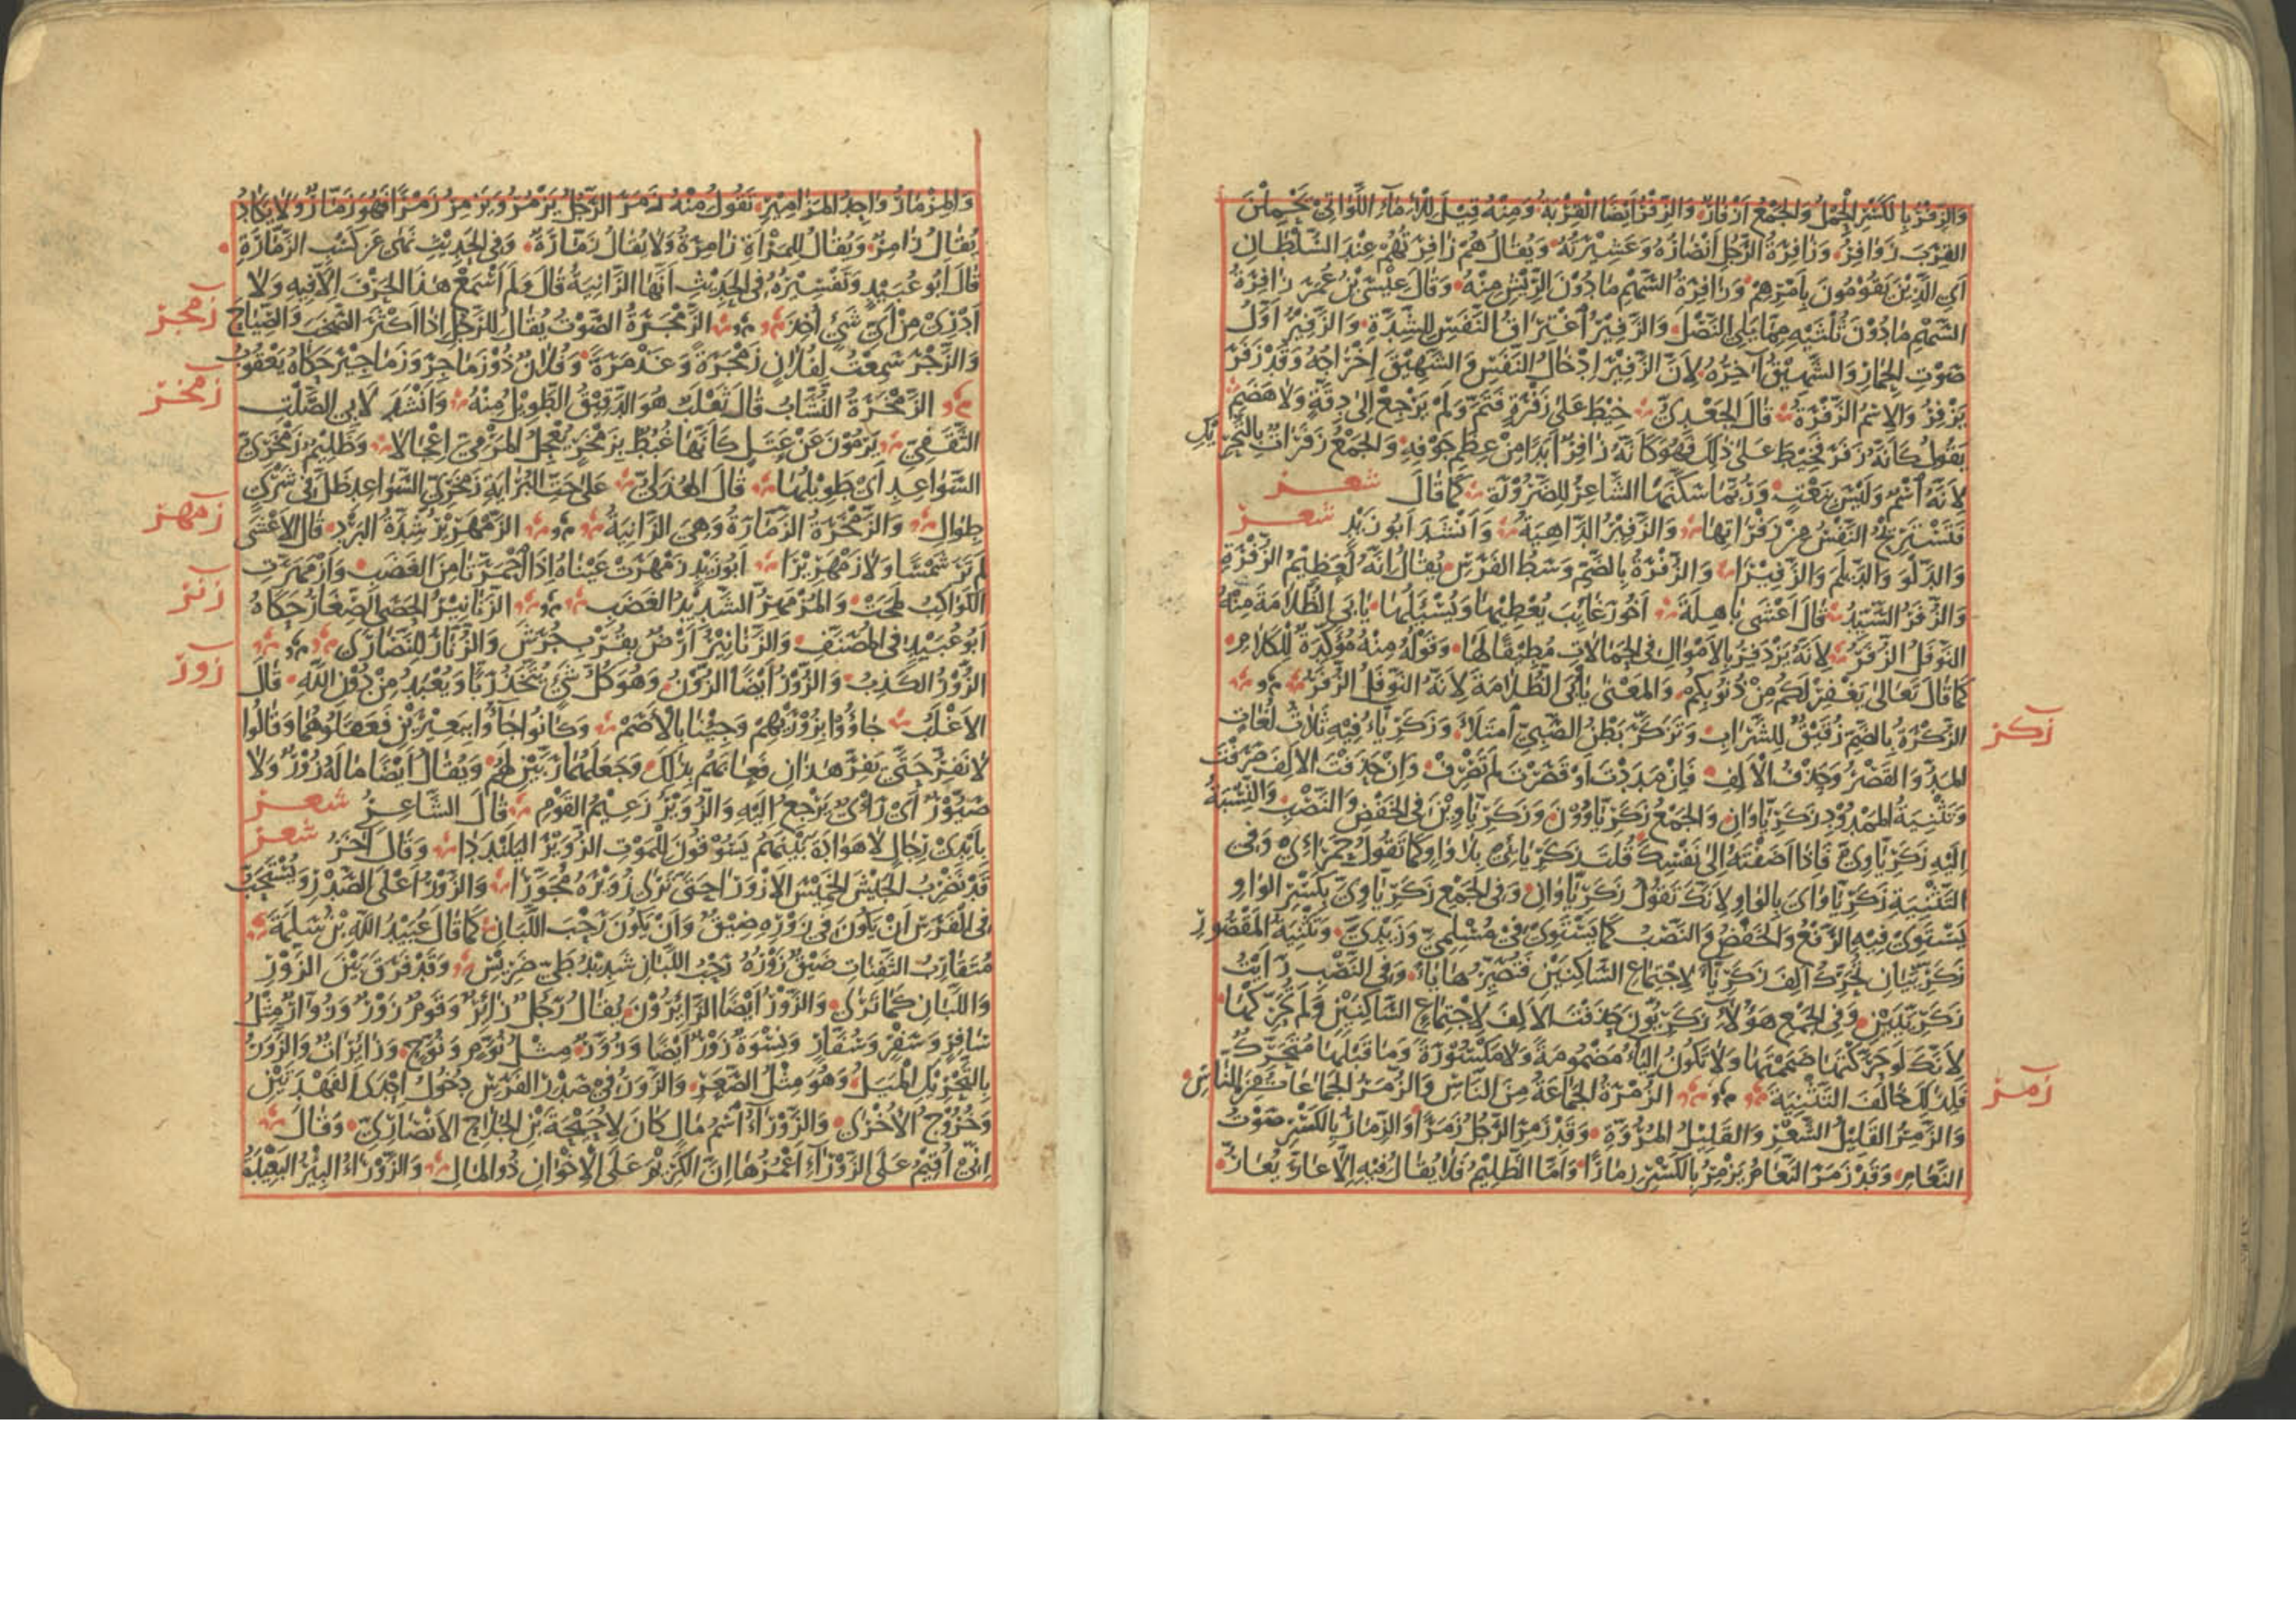 وَالزِّفْرُ بِالْكَسْرِ الْحِمْلُ وَالْجَمْعُ أَزْفَارٌ وَالزِّفْرُ أَيْضًا الْقِرْبَةُ وَمِنْهُ قِيلَ لِلْإِمَاءِ اللَّوَاتِي يَحْمِلْنَ
الْقِرَبَ زَوَافِرُ وَزَافِرَةُ الرَّجُلِ أَنْصَارُهُ وَعَشِيرَتُهُ وَيُقَالُ هُمْ زَافِرَتُهُمْ عِنْدَ السُّلْطَانِ
أَيِ الَّذِينَ يَقُومُونَ بِأَمْرِهِمْ وَزَافِرَةُ السَّهْمِ مَا دُونَ الرِّيشِ مِنْهُ وَقَالَ عِيسَى بْنُ عُمَرَ زَافِرَةُ
السَّهْمِ مَا دُونَ ثُلُثَيْهِ مِمَّا يَلِي النَّصْلَ وَالزَّفِيرُ اغْتِرَاقُ النَّفَسِ لِلشِّدَّةِ وَالزَّفِيرُ أَوَّلُ
صَوْتِ الْحِمَارِ وَالشَّهِيقُ آخِرُهُ لِأَنَّ الزَّفِيرَ إِدْخَالُ النَّفَسِ وَالشَّهِيقَ إِخْرَاجُهُ وَقَدْ زَفَرَ
يَزْفِرُ وَالِاسْمُ الزَّفْرَةُ قَالَ الْجَعْدِيُّ خِيطَ عَلَى زَفْرَةٍ فَتَمَّ وَلَمْ يَرْجِعْ إِلَى دِقَّةٍ وَلَا هَضَمِ
يَقُولُ كَأَنَّهُ زَفَرَ فَخِيطَ عَلَى ذَلِكَ فَهُوَ كَأَنَّهُ زَافِرٌ أَبَدًا مِنْ عِظَمِ جَوْفِهِ وَالْجَمْعُ زَفَرَاتٌ بِالتَّحْرِيكِ
لِأَنَّهُ اسْمٌ وَلَيْسَ بِنَعْتٍ وَرُبَّمَا سَكَّنَهَا الشَّاعِرُ لِلضَّرُورَةِ كَمَا قَالَ شعر
فَتَسْتَرِيحُ النَّفْسُ مِنْ زَفْرَاتِهَا وَالزَّفِيرُ الدَّاهِيَةُ وَأَنْشَدَ أَبُو زَيْدٍ شعر
وَالدَّلْوَ وَالدَّيْلَمَ وَالزَّفِيرَا وَالزُّفْرَةُ بِالضَّمِّ وَسَطُ الْفَرَسِ يُقَالُ إِنَّهُ لَعَظِيمُ الزُّفْرَةِ
وَالزُّفَرُ السَّيِّدُ قَالَ أَعْشَى بَاهِلَةَ أَخُو رَغَائِبَ يُعْطِيهَا وَيُسْأَلُهَا يَأْبَى الظُّلَامَةَ مِنْهُ
النَّوْفَلُ الزُّفَرُ لِأَنَّهُ يَزْدَفِرُ بِالْأَمْوَالِ فِي الْحَمَالَاتِ مُطِيقًا لَهَا وَقَوْلُهُ مِنْهُ مُؤَكِّدَةٌ لِلْكَلَامِ
كَمَا قَالَ تَعَالَى يَغْفِرْ لَكُمْ مِنْ ذُنُوبِكُمْ وَالْمَعْنَى يَأْبَى الظُّلَامَةَ لِأَنَّهُ النَّوْفَلُ الزُّفَرُ
زكر
الزُّكْرَةُ بِالضَّمِّ زُقَيْقٌ لِلشَّرَابِ وَتَزَكَّرَ بَطْنُ الصَّبِيِّ امْتَلَأَ وَزَكَرِيَّاءُ فِيهِ ثَلَاثُ لُغَاتٍ
الْمَدُّ وَالْقَصْرُ وَحَذْفُ الْأَلِفِ فَإِنْ مَدَدْتَ أَوْ قَصَرْتَ لَمْ تَصْرِفْ وَإِنْ حَذَفْتَ الْأَلِفَ صَرَفْتَ
وَتَثْنِيَةُ الْمَمْدُودِ زَكَرِيَّاوَانِ وَالْجَمْعُ زَكَرِيَّاوُونَ وَزَكَرِيَّاوِينَ فِي الْخَفْضِ وَالنَّصْبِ وَالنِّسْبَةُ
إِلَيْهِ زَكَرِيَّاوِيٌّ فَإِذَا أَضَفْتَهُ إِلَى نَفْسِكَ قُلْتَ زَكَرِيَّائِيَ بِلَا وَاوٍ كَمَا تَقُولُ حَمْرَائِيَ وَفِي
التَّثْنِيَةِ زَكَرِيَّاوَايَ بِالْوَاوِ لِأَنَّكَ تَقُولُ زَكَرِيَّاوَانِ وَفِي الْجَمْعِ زَكَرِيَّاوِيَّ بِكَسْرِ الْوَاوِ
يَسْتَوِي فِيهِ الرَّفْعُ وَالْخَفْضُ وَالنَّصْبُ كَمَا يَسْتَوِي فِي مُسْلِمِيَّ وَزَيْدِيَّ وَتَثْنِيَةُ الْمَقْصُورِ
زَكَرِيَّيَانِ تُحَرِّكُ أَلِفَ زَكَرِيَّاءَ لِاجْتِمَاعِ السَّاكِنَيْنِ فَتُصَيِّرُهَا يَاءً وَفِي النَّصْبِ رَأَيْتُ
زَكَرِيَّيَيْنِ وَفِي الْجَمْعِ هَؤُلَاءِ زَكَرِيُّونَ حَذَفْتَ الْأَلِفَ لِاجْتِمَاعِ السَّاكِنَيْنِ وَلَمْ تُحَرِّكْهَا
لِأَنَّكَ لَوْ حَرَّكْتَهَا ضَمَمْتَهَا وَلَا تَكُونُ الْيَاءُ مَضْمُومَةً وَلَا مَكْسُورَةً وَمَا قَبْلَهَا مُتَحَرِّكٌ
زمر
فَلِذَلِكَ خَالَفَ التَّثْنِيَةَ الزُّمْرَةُ الْجَمَاعَةُ مِنَ النَّاسِ وَالزُّمَرُ الْجَمَاعَاتُ مِنَ النَّاسِ
وَالزَّمِرُ الْقَلِيلُ الشَّعْرِ وَالْقَلِيلُ الْمُرُوَّةِ وَقَدْ زَمِرَ الرَّجُلُ زَمَرًا وَالزِّمَارُ بِالْكَسْرِ صَوْتُ
النَّعَامِ وَقَدْ زَمَرَ النَّعَامُ يَزْمِرُ بِالْكَسْرِ زِمَارًا وَأَمَّا الظَّلِيمُ فَلَا يُقَالُ فِيهِ إِلَّا عَارَّ يُعَارُّ
وَالْمِزْمَارُ وَاحِدُ الْمَزَامِيرِ تَقُولُ مِنْهُ زَمَرَ الرَّجُلُ يَزْمُرُ وَيَزْمِرُ زَمْرًا فَهُوَ زَمَّارٌ وَلَا يَكَادُ
يُقَالُ زَامِرٌ وَيُقَالُ لِلْمَرْأَةِ زَامِرَةٌ وَلَا يُقَالُ زَمَّارَةٌ وَفِي الْحَدِيثِ نَهَى عَنْ كَسْبِ الزَّمَّارَةِ
قَالَ أَبُو عُبَيْدٍ وَتَفْسِيرُهُ فِي الْحَدِيثِ أَنَّهَا الزَّانِيَةُ قَالَ وَلَمْ أَسْمَعْ هَذَا الْحَرْفَ إِلَّا فِيهِ وَلَا
زمجر
أَدْرِي مِنْ أَيِّ شَيْءٍ أُخِذَ الزَّمْجَرَةُ الصَّوْتُ يُقَالُ لِلرَّجُلِ إِذَا أَكْثَرَ الصَّخَبَ وَالصِّيَاحَ
وَالزَّجْرَ سَمِعْتُ لِفُلَانٍ زَمْجَرَةً وَغَذْمَرَةً وَفُلَانٌ ذُو زَمَاجِرَ وَزَمَاجِيرَ حَكَاهُ يَعْقُوبُ
زمخر
الزَّمْخَرَةُ النُّشَّابُ قَالَ ثَعْلَبٌ هُوَ الدَّقِيقُ الطَّوِيلُ مِنْهُ وَأَنْشَدَ لِأَبِي الصَّلْتِ
الثَّقَفِيِّ يَرْمُونَ عَنْ عَتَلٍ كَأَنَّهَا غُبُطٌ بِزَمْخَرٍ يُعْجِلُ الْمَرْمِيَّ إِعْجَالَا وَظَلِيمٌ زَمْخَرِيُّ
السَّوَاعِدِ أَيْ طَوِيلُهَا قَالَ الْهُذَلِيُّ عَلَى حَتِّ الْبُرَايَةِ زَمْخَرِيِّ السَّوَاعِدِ ظَلَّ فِي شَرْيٍ
زمهر
طِوَالِ وَالزَّمْخَرَةُ الزَّمَّارَةُ وَهِيَ الزَّانِيَةُ الزَّمْهَرِيرُ شِدَّةُ الْبَرْدِ قَالَ الْأَعْشَى
لَمْ تَرَ شَمْسًا وَلَا زَمْهَرِيرَا أَبُو زَيْدٍ زَمْهَرَتْ عَيْنَاهُ إِذَا احْمَرَّتَا مِنَ الْغَضَبِ وَازْمَهَرَّتِ
زنر
الْكَوَاكِبُ لَمَحَتْ وَالْمُزْمَهِرُّ الشَّدِيدُ الْغَضَبِ الزَّنَانِيرُ الْحَصَى الصِّغَارُ حَكَاهُ
أَبُو عُبَيْدٍ فِي الْمُصَنَّفِ وَالزَّنَانِيرُ أَرْضٌ بِقُرْبِ جُرَشَ وَالزُّنَّارُ لِلنَّصَارَى
زور
الزُّورُ الْكَذِبُ وَالزُّورُ أَيْضًا الزُّونُ وَهُوَ كُلُّ شَيْءٍ يُتَّخَذُ رَبًّا وَيُعْبَدُ مِنْ دُونِ اللَّهِ قَالَ
الْأَغْلَبُ جَاؤُوا بِزُورَيْهِمْ وَجِئْنَا بِالْأَصَمْ وَكَانُوا جَاؤُوا بِبَعِيرَيْنِ فَعَقَلُوهُمَا وَقَالُوا
لَا نَفِرُّ حَتَّى يَفِرَّ هَذَانِ فَعَابَهُمْ بِذَلِكَ وَجَعَلَهُمَا رَبَّيْنِ لَهُمْ وَيُقَالُ أَيْضًا مَا لَهُ زَوْرٌ وَلَا
صَيُّورٌ أَيْ رَأْيٌ يَرْجِعُ إِلَيْهِ وَالزُّوَيْرُ زَعِيمُ الْقَوْمِ قَالَ الشَّاعِرُ شعر
بِأَيْدِي رِجَالٍ لَا هَوَادَةَ بَيْنَهُمْ يَسُوقُونَ لِلْمَوْتِ الزُّوَيْرَ الْيَلَنْدَدَا وَقَالَ آخَرُ شعر
قَدْ نَضْرِبُ الْجَيْشَ الْخَمِيسَ الْأَزْوَرَا حَتَّى تَرَى زُوَيْرَهُ مُجَوَّرَا وَالزَّوْرُ أَعْلَى الصَّدْرِ وَيُسْتَحَبُّ
فِي الْفَرَسِ أَنْ يَكُونَ فِي زَوْرِهِ ضِيقٌ وَأَنْ يَكُونَ رَحْبَ اللَّبَانِ كَمَا قَالَ عُبَيْدُ اللَّهِ بْنُ سَلِمَةَ
مُتَقَارِبُ الثَّفِنَاتِ ضَيْقٌ زَوْرُهُ رَحْبُ اللَّبَانِ شَدِيدُ طَيِّ ضَرِيسِ وَقَدْ فَرَّقَ بَيْنَ الزَّوْرِ
وَاللَّبَانِ كَمَا تَرَى وَالزَّوْرُ أَيْضًا الزَّائِرُونَ يُقَالُ رَجُلٌ زَائِرٌ وَقَوْمٌ زَوْرٌ وَزُوَّارٌ مِثْلُ
سَافِرٍ وَسَفْرٍ وَسُفَّارٍ وَنِسْوَةٌ زَوْرٌ أَيْضًا وَزُوَّرٌ مِثْلُ نُوَّمٍ وَنُوَّحٍ وَزَائِرَاتٌ وَالزَّوَرُ
بِالتَّحْرِيكِ الْمَيَلُ وَهُوَ مِثْلُ الصَّعَرِ وَالزَّوَرُ فِي صَدْرِ الْفَرَسِ دُخُولُ إِحْدَى الْفَهْدَتَيْنِ
وَخُرُوجُ الْأُخْرَى وَالزَّوْرَاءُ اسْمُ مَالٍ كَانَ لِأُحَيْحَةَ بْنِ الْجُلَاحِ الْأَنْصَارِيِّ وَقَالَ
إِنِّي أُقِيمُ عَلَى الزَّوْرَاءِ أَعْمُرُهَا إِنَّ الْكَرِيمَ عَلَى الْإِخْوَانِ ذُو الْمَالِ وَالزَّوْرَاءُ الْبِئْرُ الْبَعِيدَةُ